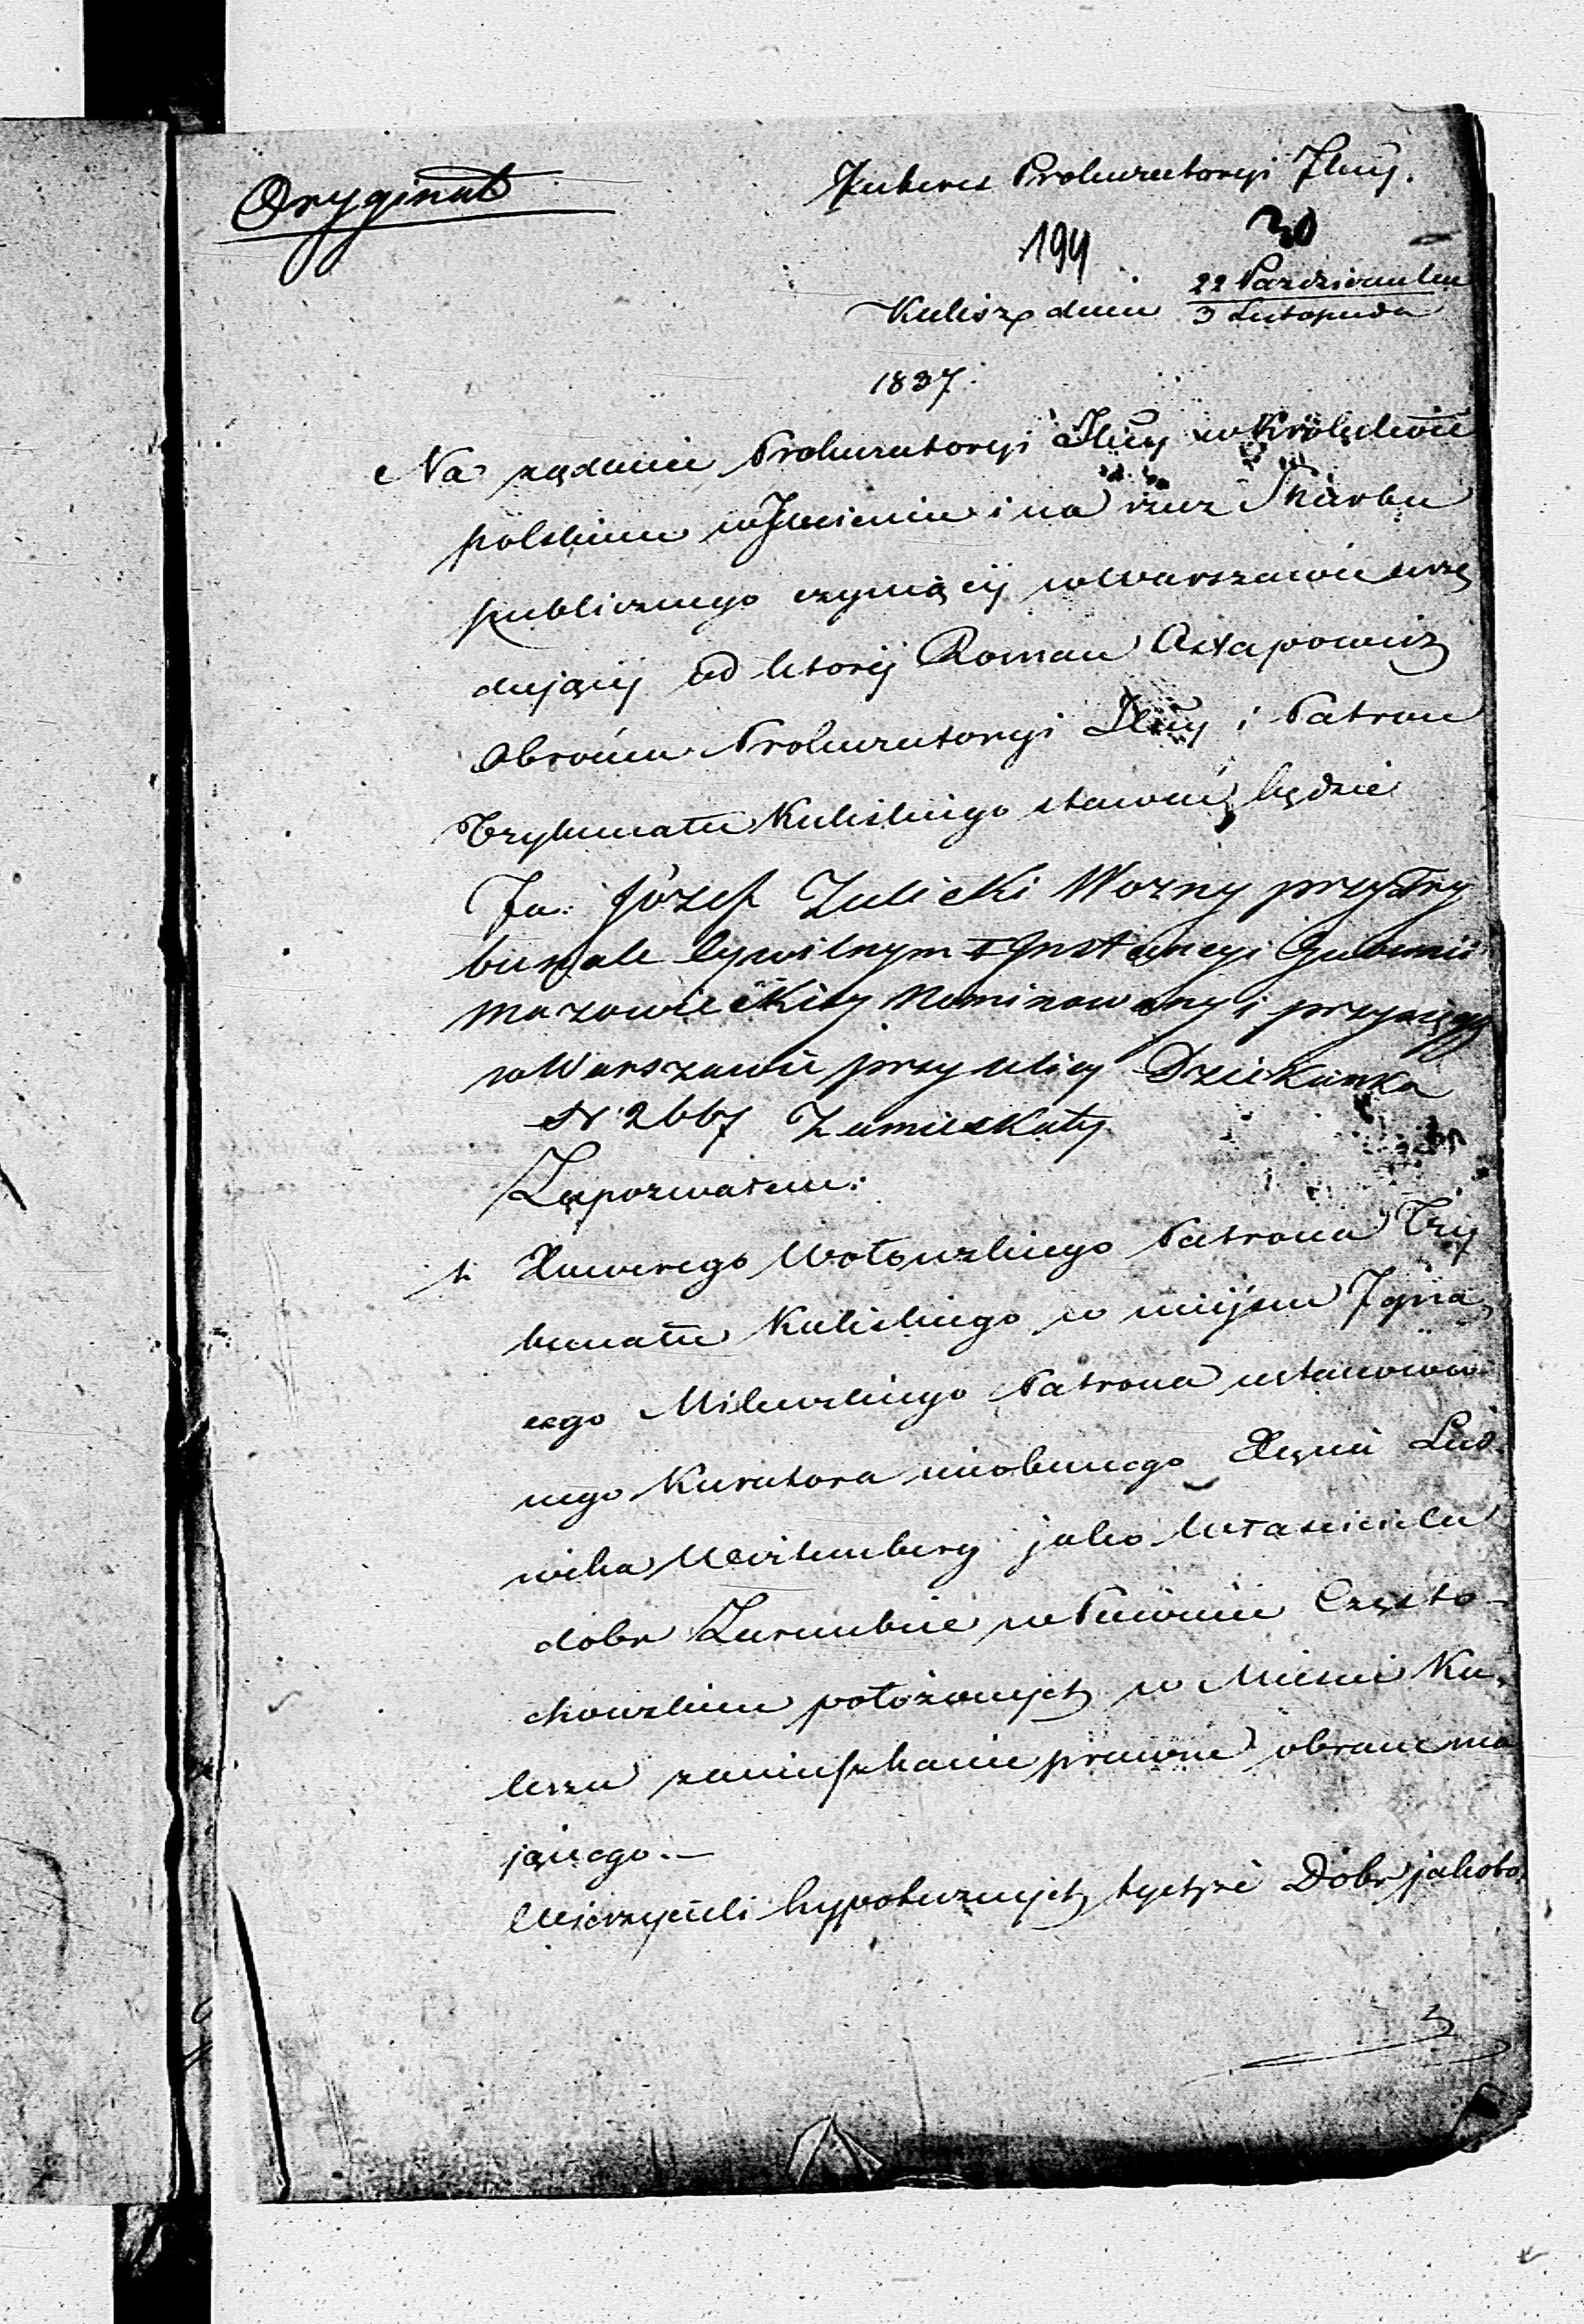 Oryginał
Interes Prokuratoryi Jlnéy.
194
30
Kalisz dnia 22 Października
3 Listopada
1837.
Na żądanie Prokuratoryi Jlnéy w Królestwie
polskim w Jmieniu i na rzecz Skarbu
publicznego czyniącéj w Warszawie urzę
dującéj od któréj Roman Ostapowicz
Obrońca Prokuratoryi Jlnéy i Patron
Trybunału Kaliskiego stawać będzie
Ja: Józef Zalicki Wozny przy Try
bunale Cywilnym I Instancyi Gubernii
Mazowieckiéy Nominowany i przysięgły
w Warszawie przy ulicy Dziekanka
N 2667 Zamieszkały
Zapozwałem:
1. Xawerego Wołowskiego Patrona Try
bunału Kaliskiego w miejscu Igna
cego Milewskiego Patrona ustanowio
nego Kuratora nieobecnego Xięcia Lud
wika Wirtemberg jako Właściciela
dobr Zarembice w Powiecie Często-
chowskim położonych w Mieście Ka
liszu zamieszkanie prawne obrane ma
jącego.—
Wierzycieli hypotecznych tychże Dobr jakoto